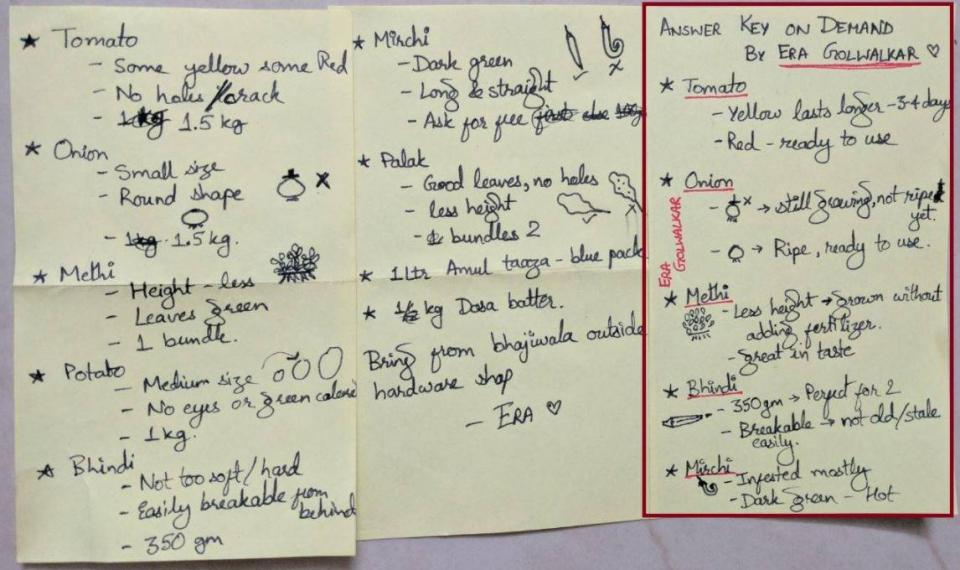 ★ Tomato
- Some yellow some Red
- No holes/crack
- 1kg 1.5 kg
★ Onion
- Small size
- Round shape
x
- 1kg 1.5 kg.
★ Methi
- Height - less
- Leaves green
- 1 bundle.
★ Potato
- Medium size
- No eyes or green
- 1kg.
★ Bhindi
- Not too soft/hard
- Easily breakable from
behind
- 350 gm
★ Mirchi
- Dark green
x
- Long & straight
- Ask for free
★ Palak
- Good leaves, no holes
- less height
- bundles 2
★ 1 ltr Amul taaza - blue pack
★ 1/2 kg Dosa batter.
Bring from bhajiwala outside
hardware shop
- ERA ♡
ANSWER KEY ON DEMAND
BY ERA GOLWALKAR ♡
★ Tomato
- Yellow lasts longer - 3-4 days
- Red - ready to use
★ Onion
- x → still growing, not ripe
yet.
- → Ripe, ready to use.
ERA
GOLWALKAR
★ Methi
- Less height → grown without
adding fertilizer.
- great in taste
★ Bhindi
- 350gm → Perfect for 2
- Breakable → not old/stale
easily.
★ Mirchi
- Infested mostly
- Dark green - Hot